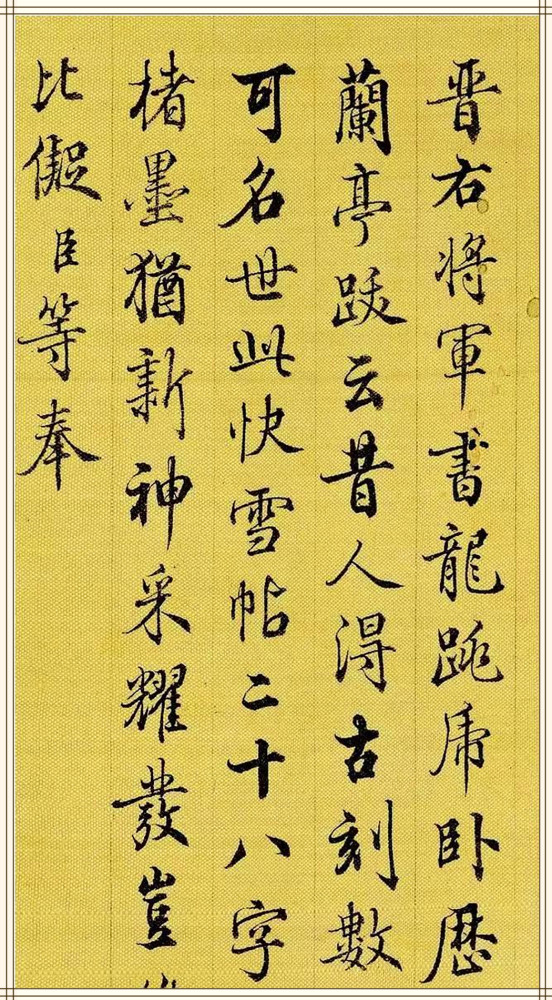 晋右将軍書龍跳乕卧歷
蘭亭跋云昔人得古刻數
可名世此快雪帖二十八字
楮墨猶新神采耀發豈
比儗臣等奉